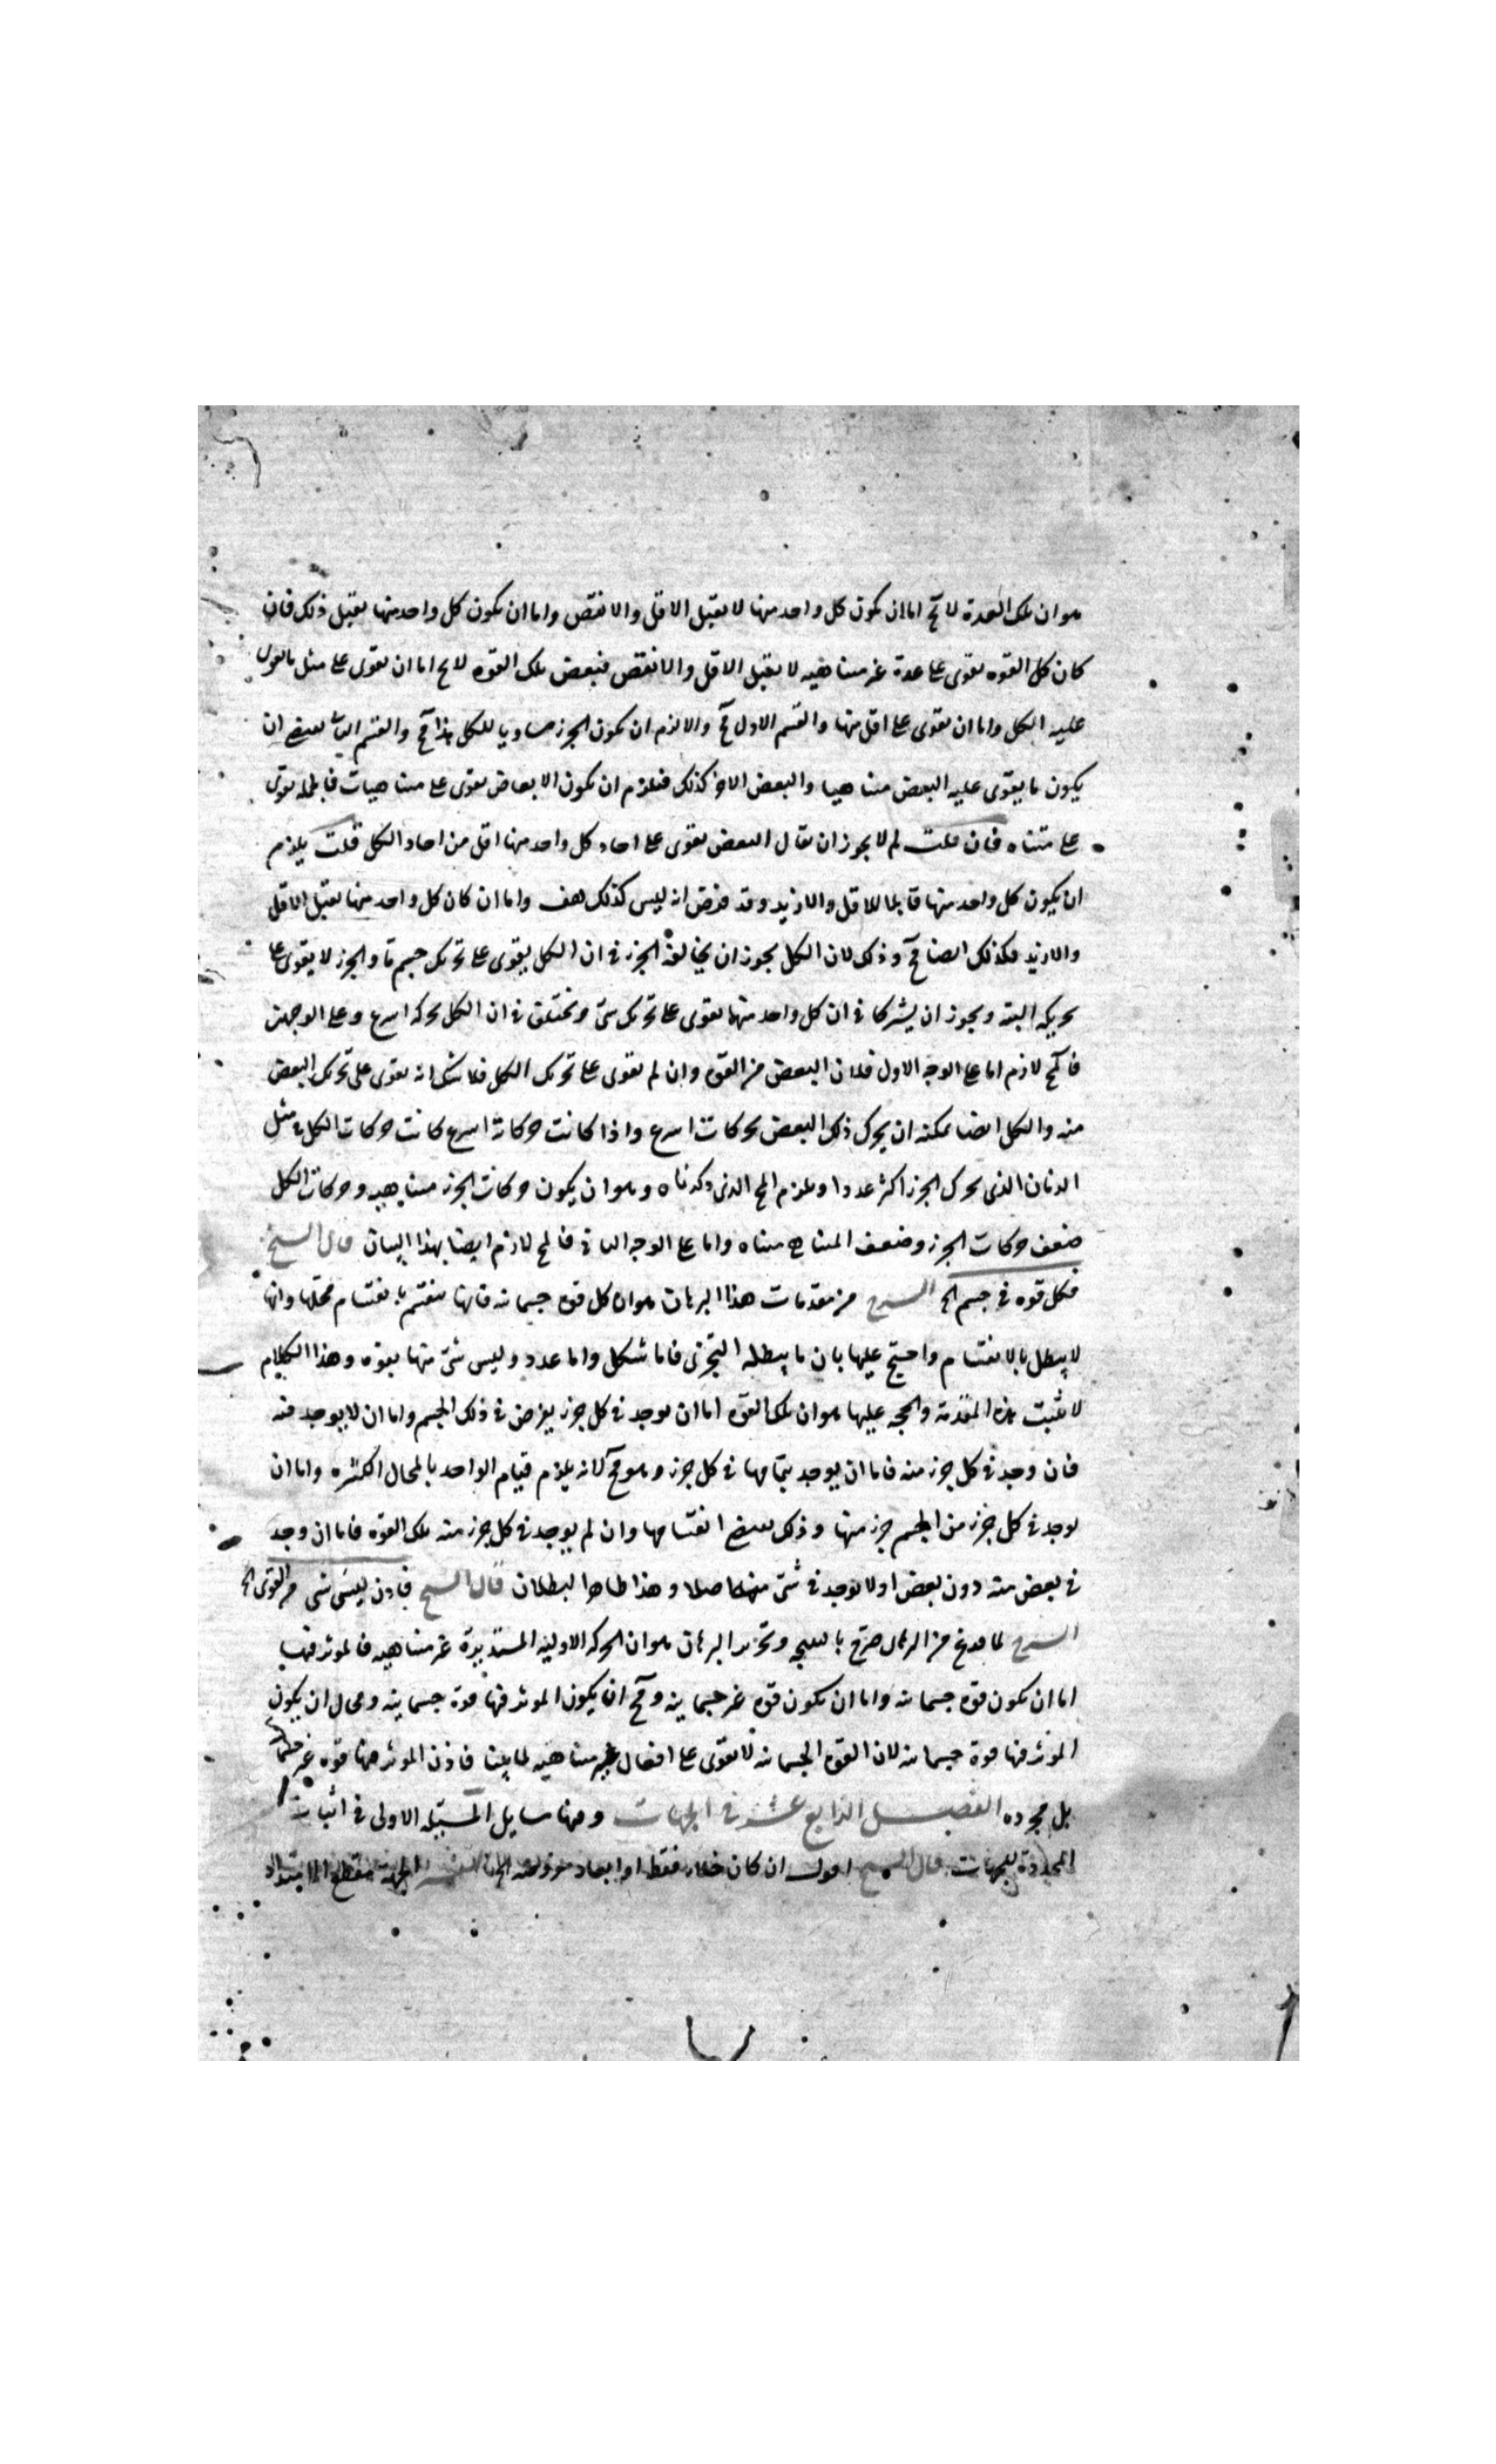 هو ان تلك العدة لا يخ اما ان تكون كل واحد منها لا يقبل الاقل والانقص واما ان يكون كل واحد منها يقبل ذلك فان
كان كل القوه تقوى على عدة غير متناهيه لا يقبل الاقل والانقص فبعض تلك القوه لا يخ اما ان تقوى على مثل ما تقوى
عليه الكل واما ان تقوى على اقل منها والقسم الاول مح والا لزم ان يكون الجزء مساويا للكل هذا مح والقسم الثانى يقتضى ان
يكون ما يقوى عليه البعض متناهيا والبعض الاخر كذلك فيلزم ان يكون الابعاض تقوى على متناهيات فالجمله تقوى
على متناه فان قلت لم لا يجوز ان يقال البعض يقوى على احاد كل واحد منها اقل من احاد الكل قلت يلزم
ان يكون كل واحد منها قابلا للاقل والازيد وقد فرض انه ليس كذلك هف واما ان كان كل واحد منها يقبل الاقل
والازيد فكذلك ايضا مح وذلك لان الكل يجوز ان يخالفه الجزء فى ان الكل يقوى على تحريك جسم ما والجزء لا يقوى على
تحريكه البته ويجوز ان يشتركا فى ان كل واحد منهما يقوى على تحريك شئ ويختلف فى ان الكل يحركه اسرع وعلى الوجهين
فالمح لازم اما على الوجه الاول فلان البعض من القوه وان لم تقوى على تحريك الكل فلا شك انه يقوى على تحريك البعض
منه والكل ايضا يمكنه ان يحرك ذلك البعض بحركات اسرع واذا كانت حركاته اسرع كانت حركات الكل فى مثل
الزمان الذى يحرك الجزء اكثر عددا ويلزم المح الذى ذكرناه وهو ان يكون حركات الجزء متناهيه وحركات الكل
ضعف حركات الجزء وضعف المتناهى متناه واما على الوجه الثانى فالمح لازم ايضا بهذا البيان قال الشيخ
فكل قوه فى جسم الخ الشرح من مقدمات هذا البرهان هو ان كل قوه جسمانيه فانها تنقسم بانقسام محلها وانها
لا يبطل بالانقسام واحتج عليها بان ما يبطله التجزى فاما شكل واما عدد وليس شئ منها بقوه وهذا الكلام
لا يثبت هذه المقدمة والحجه عليها هو ان تلك القوه اما ان توجد فى كل جزء يفرض فى ذلك الجسم واما ان لا يوجد فيه
فان وجد فى كل جزء منه فاما ان يوجد بتمامها فى كل جزء وهو مح لانه يلزم قيام الواحد بالمحال الكثيره واما ان
يوجد فى كل جزء من الجسم جزء منها وذلك يقتضى انقسامها وان لم يوجد فى كل جزء منه تلك القوه فاما ان وجد
فى بعض منه دون بعض او لا يوجد فى شئ منها اصلا وهذا ظاهر البطلان قال الشيخ فاذن ليس شى من القوى الخ
الشرح لما فرغ من البرهان صرح بالنتيجه وتحرير البرهان هو ان الحركه الاوليه المستديرة غير متناهيه فالموثر فيها
اما ان تكون قوه جسمانيه واما ان تكون قوه غير جسمانيه ومح ان يكون الموثر فيها قوة جسمانيه ومحال ان يكون
الموثر فيها قوة جسمانيه لان القوه الجسمانيه لا تقوى على افعال غير متناهيه لما بينا فاذن الموثر فيها قوه غير جسمانيه
بل مجرده الفصل الرابع عشر فى الجهات وفيها مسايل المسئله الاولى فى اثبات
المحددة للجهات قال الشيخ اقول ان كان خلاء فقط او ابعاد مفروضه الخ التفسير الجهة مقطع الامتداد